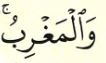 وَٱلْمَغْرِبُ ۚ